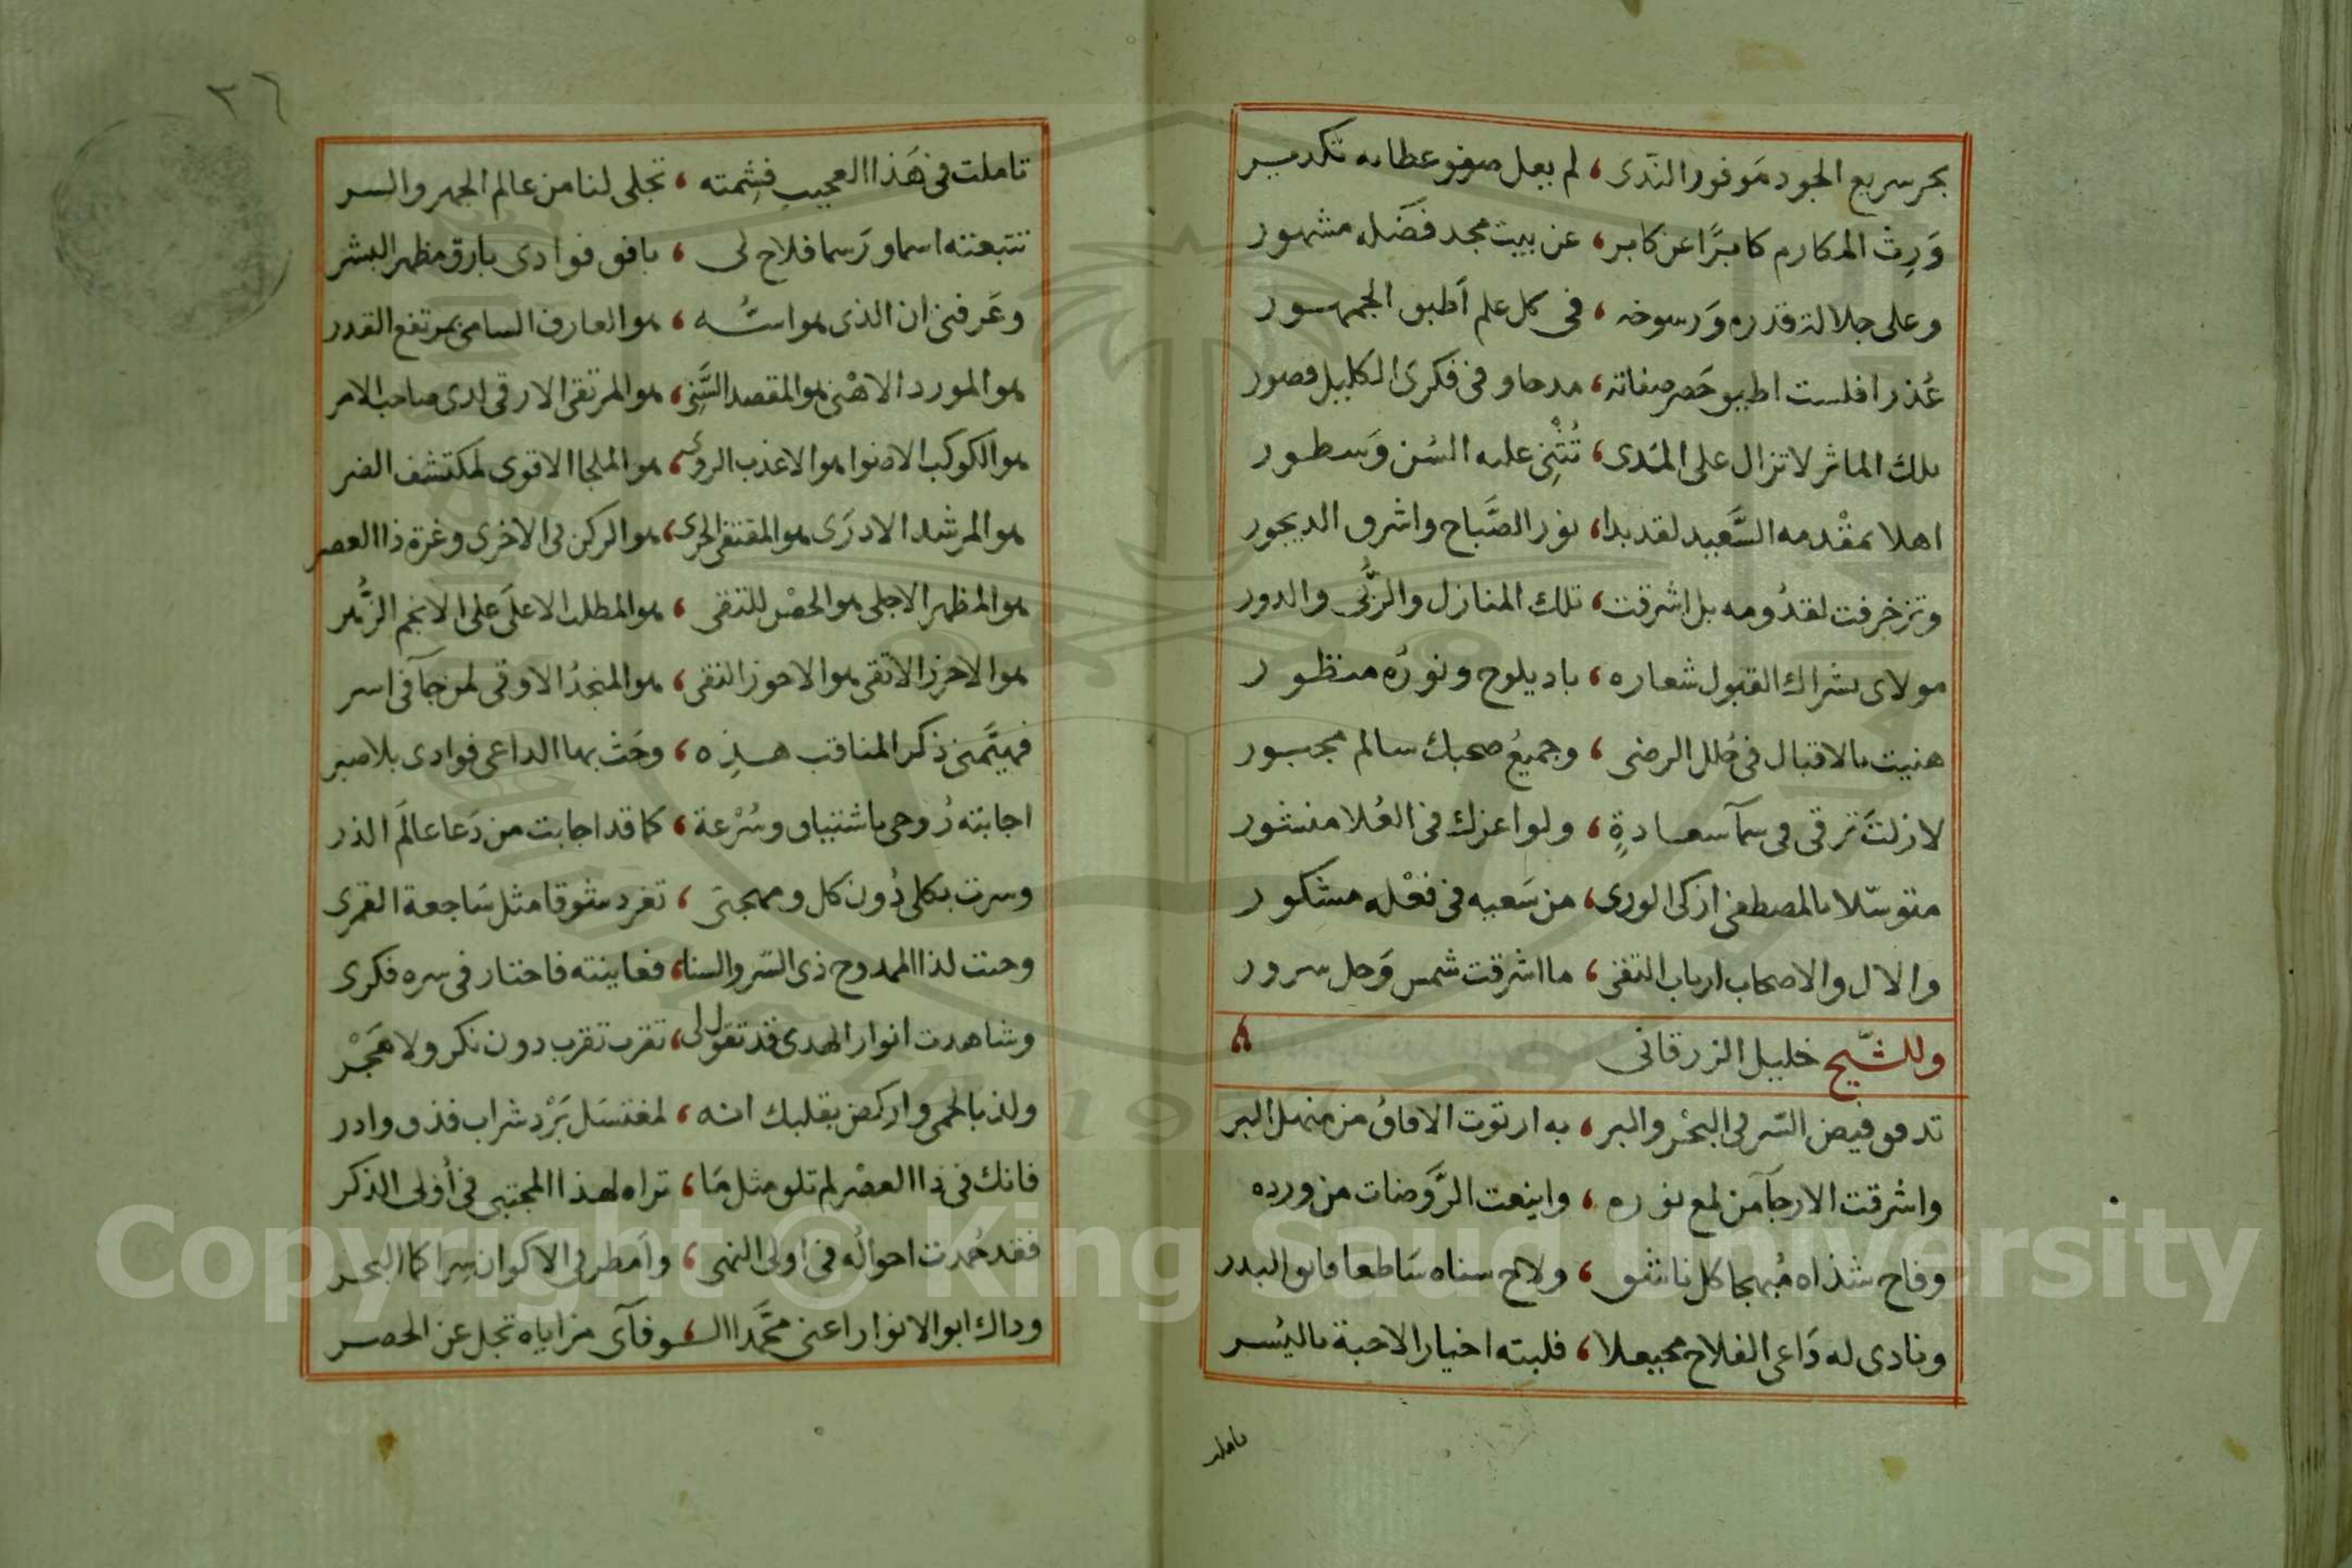 بحر سريع الجود مَوفور النَّدى ، لم يعل صفو عطائه تكدير
وَرِثَ المكارم كابرًا عن كابر ، عن بيت مجد فَضله مشهور
وعلى جلالة قدره وَرسوخه ، فى كل علم أطبق الجمهور
عُذرا فلست اطيق حَصر صفاته ، مدحا وفى فكرى الكليل قصور
تلك الماثر لا تزال على المَدى ، تُثْنِى عليه السُن وَسطور
اهلا بمقْدمه السَّعيد لقد بدا ، نور الصَّباح واشرق الديجور
وتزخرفت لقدُومه بل اشرقت ، تلك المنازل والرُّبى والدور
مولاى بشراك القبول شعاره ، باد يلوح ونورُه منظور
هنيت بالاقبال فى حُلل الرضى ، وجميعُ صحبك سالم مجبور
لازلتَ ترقى فى سمآ سعادةٍ ، ولوا عزك فى العُلا منشور
متوسّلا بالمصطفى ازكى الورى ، من سَعيه فى فعْله مشكور
والال والاصحاب ارباب التقى ، ما اشرقت شمس وَحل سرور
وللشَّيخ خليل الزرقانى
تدفق فيض السّر فى البحْر والبر ، به ارتوت الافاقُ من منهل البر
واشرقت الارجآ من لمع نوره ، واينعت الرَّوضات من ورده
وفاح شذاه مُبهجا كل ناشق ، ولاح سناه سَاطعا فائق البدر
ونادى له دَاعى الفلاح محيعلا ، فلبته اخيار الاحبة باليُسر
تاملت
٣٦
تاملت فى هَذا العجيب فشِمته ، تجلى لنا من عالم الجهر والسر
تتبعته اسما ورَسما فلاح لى ، بافق فوادى بارق مظهر البشر
وعَرفنى ان الذى هو اسُّه ، هو العارف السامى بمرتفع القدر
هو المورد الاهْنى هو المقصد السَّنِى ، هو المرتقى الارقى لدى صاحب الامر
هو الكوكب الاضوا هو الاعذب الروى ، هو الملجا الاقوى لمكتشف الضر
هو المرشد الادرَى هو المقتفى الحرى ، هو الركن فى الاخرى وغرة ذا العصر
هو المظهر الاجلى هو الحصْن للتقى ، هو المطلب الاعلَى على الانجم الزُّهر
هو الاحرز الاتقى هو الاحوز النقى ، هو المنجدُ الاوقى لمن جآ فى اسر
فهيَّمنى ذكر المناقب هـذِه ، وحَث بها الداعى فوادى بلا صبر
اجابته رُوحى باشتياق وسُرْعة ، كما قد اجابت من دَعا عالَم الذر
وسرت بكلى دُون كل ومهجتى ، تغرد شوقا مثل سَاجعة القمرى
وجئت لذا الممدوح ذى السّر والسنا ، فعاينته فاحتار فى سره فكرى
وشاهدت انوار الهدى قد تقول لى ، تقرب تقرب دون نكر ولا هَجْر
ولذ بالحمى واركض بقلبك انه ، لمغتسَل بَرْد شراب فذق وادر
فانك فى ذا العصْر لم تلق مثل مَا ، تراه لهذا المجتبى فى أولى الذكر
فقد حُمدت احوالُه فى اولى النهى ، وأمطر فى الاكوان سِرا كما البحر
وذاك ابو الانوار اعنى محَّمدا الـ ، ـوفآى مزاياه تجل عن الحصر
Copyright © King Saud University